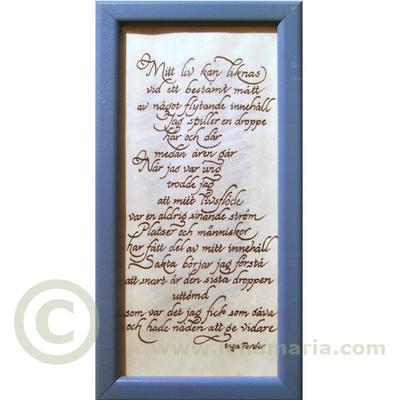 Mitt liv kan liknas
vid ett bestämt mått
av något flytande innehåll
Jag spiller en droppe
här och där
medan åren går
När jag var ung
trodde jag
att mitt livsflöde
var en aldrig sinande ström
Platser och människor
har fått del av mitt innehåll
Sakta börjar jag förstå
att snart är den sista droppen
uttömd
som var det jag fick som gåva
och hade nåden att ge vidare
©
maria.com